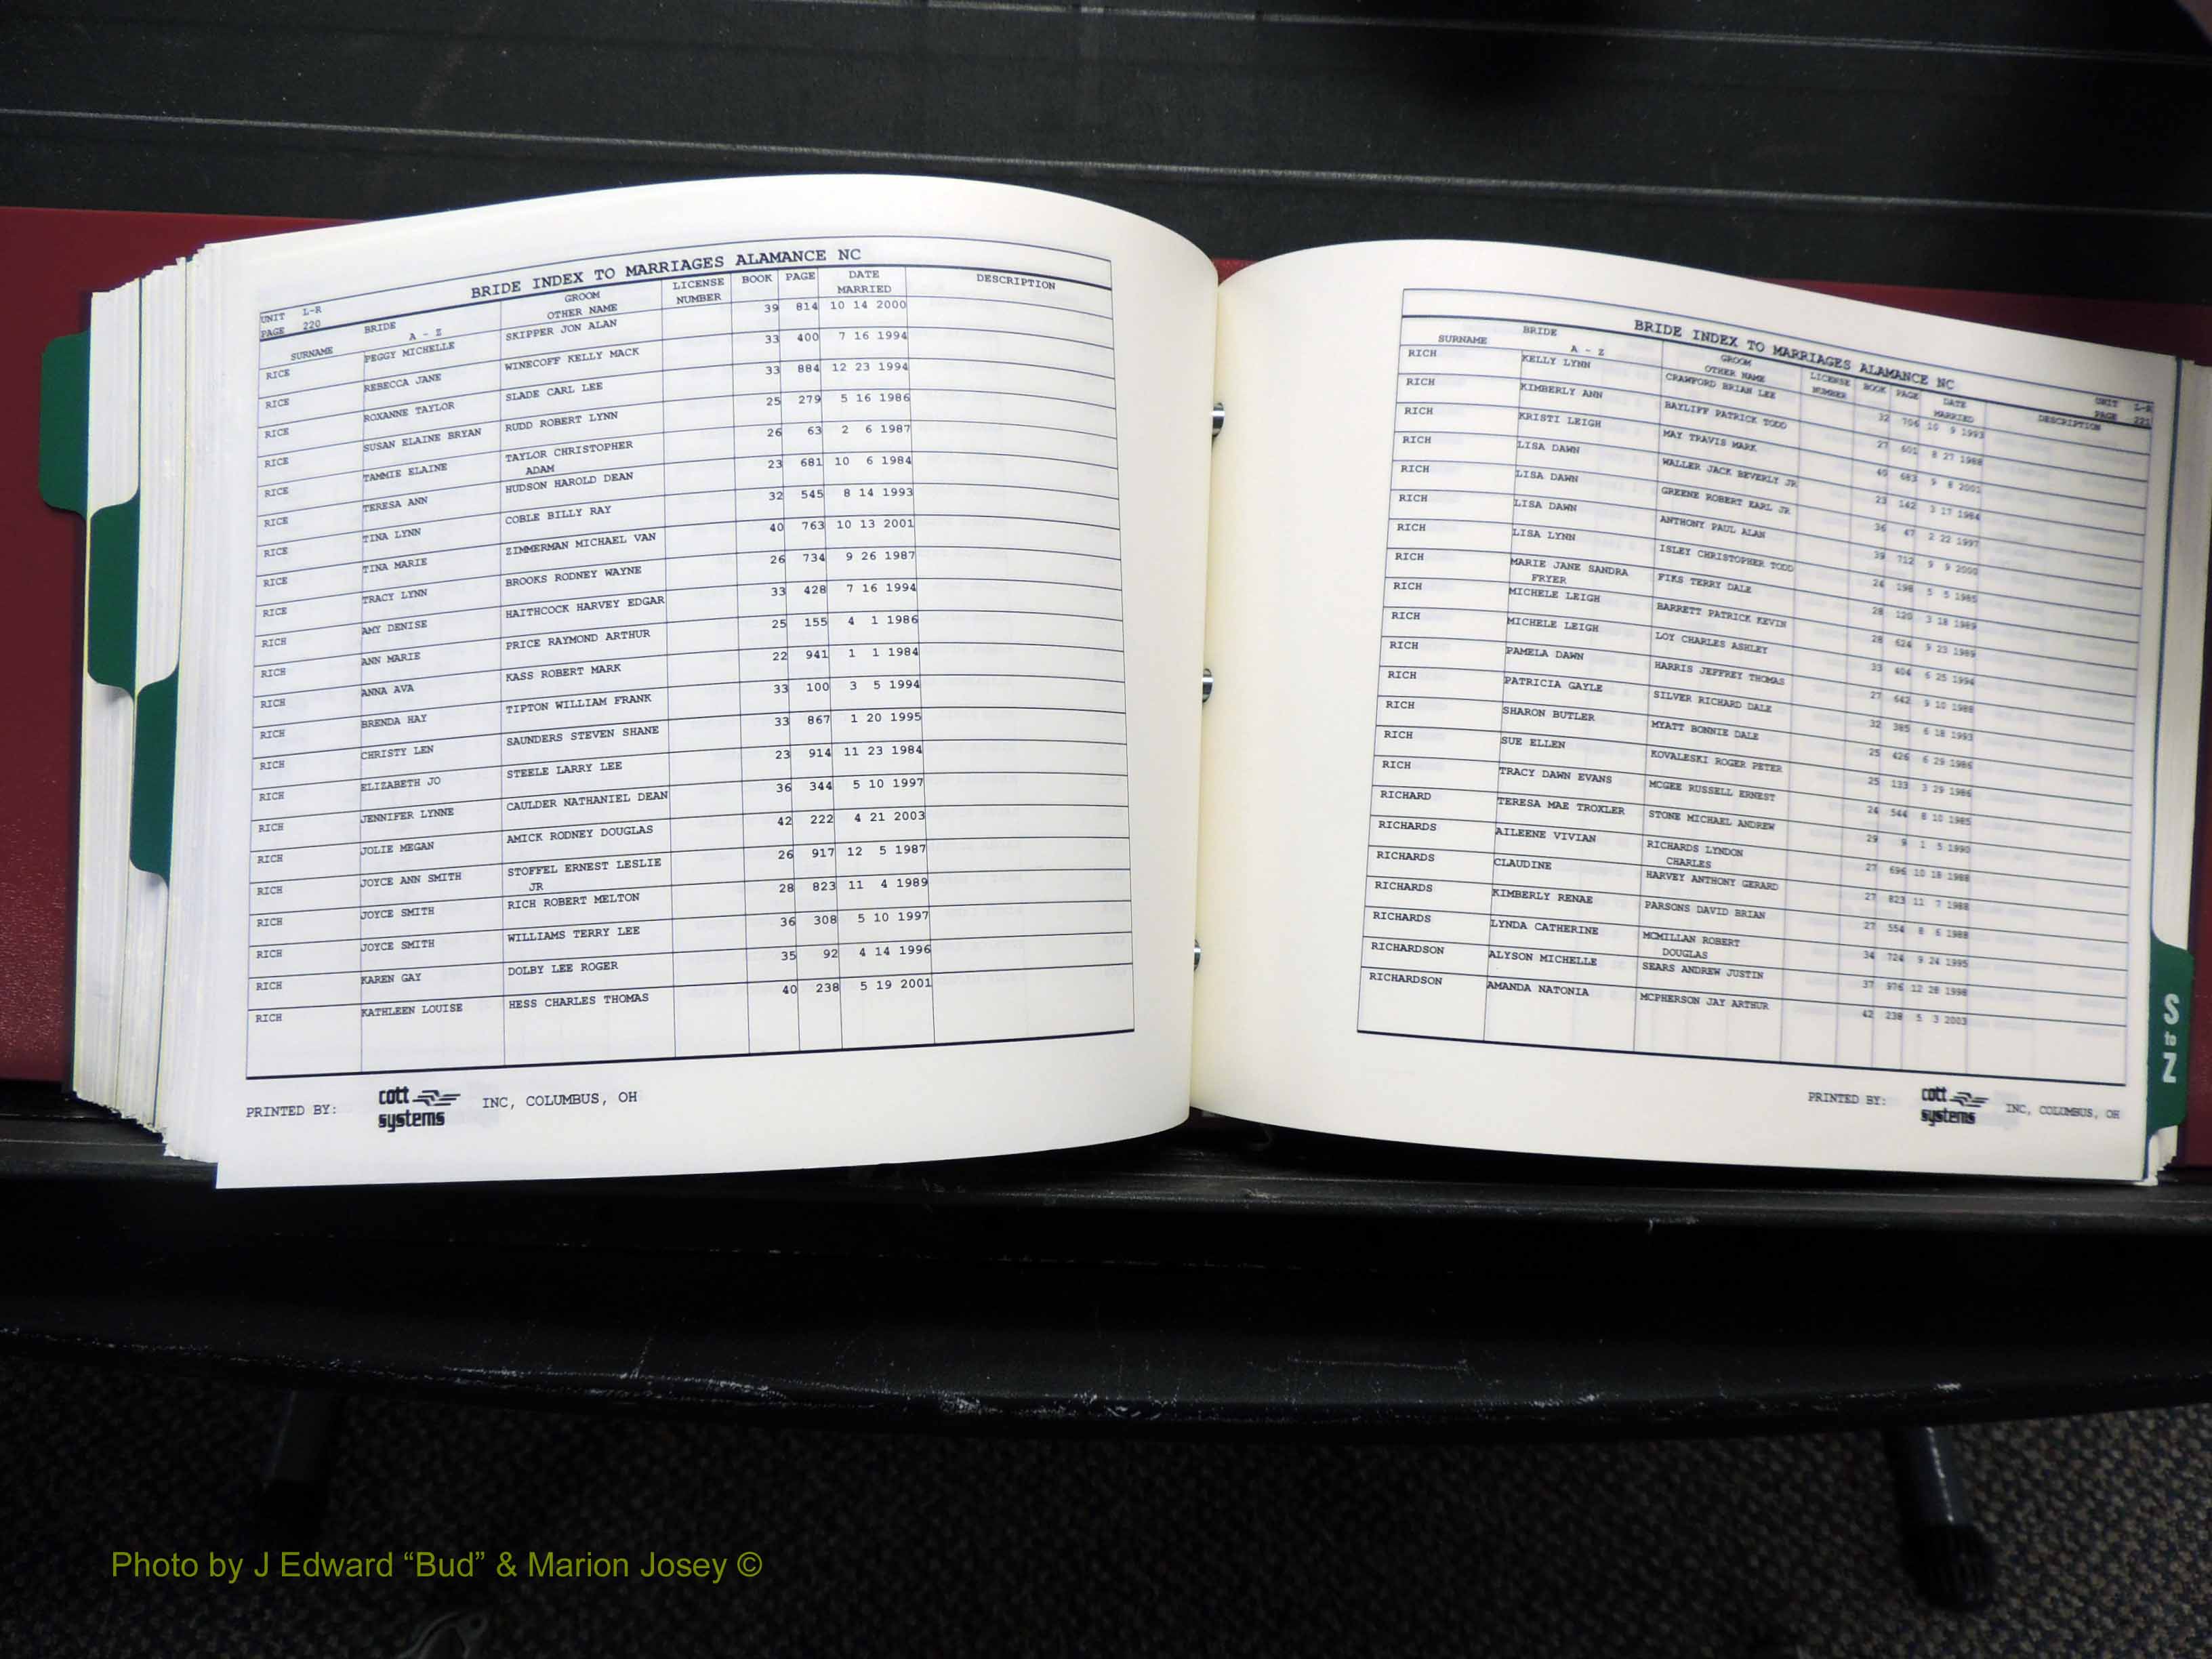 UNIT L-R
PAGE 220
BRIDE INDEX TO MARRIAGES ALAMANCE NC
SURNAME BRIDE A - Z GROOM OTHER NAME LICENSE NUMBER BOOK PAGE DATE MARRIED DESCRIPTION
RICE PEGGY MICHELLE SKIPPER JON ALAN 39 814 10 14 2000
RICE REBECCA JANE WINECOFF KELLY MACK 33 400 7 16 1994
RICE ROXANNE TAYLOR SLADE CARL LEE 33 884 12 23 1994
RICE SUSAN ELAINE BRYAN RUDD ROBERT LYNN 25 279 5 16 1986
RICE TAMMIE ELAINE TAYLOR CHRISTOPHER 26 63 2 6 1987
ADAM
RICE TERESA ANN HUDSON HAROLD DEAN 23 681 10 6 1984
RICE TINA LYNN COBLE BILLY RAY 32 545 8 14 1993
RICE TINA MARIE ZIMMERMAN MICHAEL VAN 40 763 10 13 2001
RICE TRACY LYNN BROOKS RODNEY WAYNE 26 734 9 26 1987
RICH AMY DENISE HAITHCOCK HARVEY EDGAR 33 428 7 16 1994
RICH ANN MARIE PRICE RAYMOND ARTHUR 25 155 4 1 1986
RICH ANNA AVA KASS ROBERT MARK 22 941 1 1 1984
RICH BRENDA HAY TIPTON WILLIAM FRANK 33 100 3 5 1994
RICH CHRISTY LEN SAUNDERS STEVEN SHANE 33 867 1 20 1995
RICH ELIZABETH JO STEELE LARRY LEE 23 914 11 23 1984
RICH JENNIFER LYNNE CAULDER NATHANIEL DEAN 36 344 5 10 1997
RICH JOLIE MEGAN AMICK RODNEY DOUGLAS 42 222 4 21 2003
RICH JOYCE ANN SMITH STOFFEL ERNEST LESLIE 26 917 12 5 1987
JR
RICH JOYCE SMITH RICH ROBERT MELTON 28 823 11 4 1989
RICH JOYCE SMITH WILLIAMS TERRY LEE 36 308 5 10 1997
RICH KAREN GAY DOLBY LEE ROGER 35 92 4 14 1996
RICH KATHLEEN LOUISE HESS CHARLES THOMAS 40 238 5 19 2001
PRINTED BY: cott systems INC, COLUMBUS, OH
BRIDE INDEX TO MARRIAGES ALAMANCE NC
UNIT L-R
PAGE 221
SURNAME BRIDE A - Z GROOM OTHER NAME LICENSE NUMBER BOOK PAGE DATE MARRIED DESCRIPTION
RICH KELLY LYNN CRAWFORD BRIAN LEE 32 706 10 9 1993
RICH KIMBERLY ANN BAYLIFF PATRICK TODD 27 601 8 27 1988
RICH KRISTI LEIGH MAY TRAVIS MARK 40 683 9 8 2001
RICH LISA DAWN WALLER JACK BEVERLY JR 23 142 3 17 1984
RICH LISA DAWN GREENE ROBERT EARL JR 36 47 2 22 1997
RICH LISA DAWN ANTHONY PAUL ALAN 39 712 9 9 2000
RICH LISA LYNN ISLEY CHRISTOPHER TODD 24 198 5 5 1985
RICH MARIE JANE SANDRA FIKS TERRY DALE 28 120 3 18 1989
FRYER
RICH MICHELE LEIGH BARRETT PATRICK KEVIN 28 624 9 23 1989
RICH MICHELE LEIGH LOY CHARLES ASHLEY 33 404 6 25 1994
RICH PAMELA DAWN HARRIS JEFFREY THOMAS 27 642 9 10 1988
RICH PATRICIA GAYLE SILVER RICHARD DALE 32 385 6 18 1993
RICH SHARON BUTLER MYATT BONNIE DALE 25 426 6 29 1986
RICH SUE ELLEN KOVALESKI ROGER PETER 25 133 3 29 1986
RICH TRACY DAWN EVANS MCGEE RUSSELL ERNEST 24 544 8 10 1985
RICHARD TERESA MAE TROXLER STONE MICHAEL ANDREW 29 9 1 5 1990
RICHARDS AILEENE VIVIAN RICHARDS LYNDON 27 696 10 18 1988
CHARLES
RICHARDS CLAUDINE HARVEY ANTHONY GERARD 27 823 11 7 1988
RICHARDS KIMBERLY RENAE PARSONS DAVID BRIAN 27 554 8 6 1988
RICHARDS LYNDA CATHERINE MCMILLAN ROBERT 34 724 9 24 1995
DOUGLAS
RICHARDSON ALYSON MICHELLE SEARS ANDREW JUSTIN 37 976 12 28 1998
RICHARDSON AMANDA NATONIA MCPHERSON JAY ARTHUR 42 238 5 3 2003
PRINTED BY: cott systems INC, COLUMBUS, OH
S to Z
Photo by J Edward “Bud” & Marion Josey ©